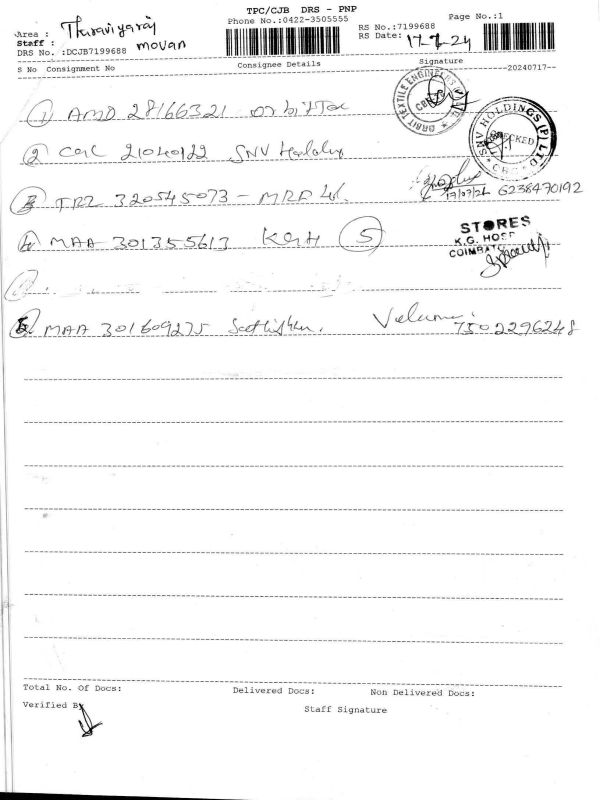 TPC/CJB DRS - PNP
Phone No.:0422-3505555
Page No.:1
Area : Thuraviyaraj
Staff : movan
DRS No. :DCJB7199688
RS No.:7199688
RS Date: 17-7-24
S No Consignment No Consignee Details Signature
--20240717--
1 AMD 28166321
ORBIT TEXTILE ENGINEERS
CBE
2 21040122 SNV
SNV HOLDINGS (P) LTD
CHECKED
3 TRZ 320545073 - MRF
17/07/24 6238470192
4 MAA 301355613 KGH 5
STORES
K.G. HOSP
COIMBAT
5 MAA 301609275
7502296248
Total No. Of Docs: Delivered Docs: Non Delivered Docs:
Verified By
Staff Signature